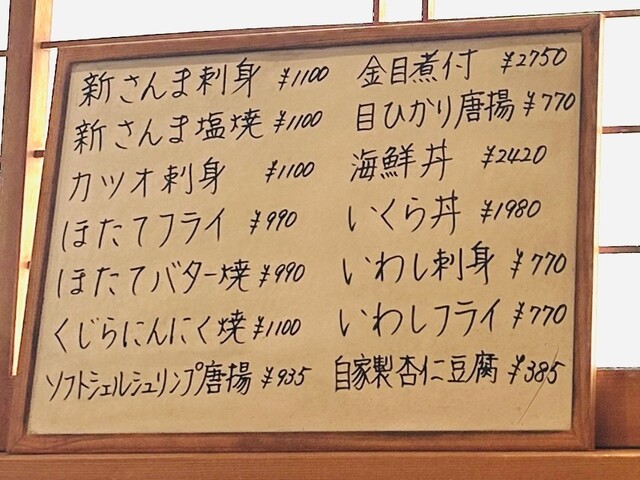 新さんま刺身 ¥1100
新さんま塩焼 ¥1100
カツオ刺身 ¥1100
ほたてフライ ¥990
ほたてバター焼 ¥990
くじらにんにく焼 ¥1100
ソフトシェルシュリンプ唐揚 ¥935
金目煮付 ¥2750
目ひかり唐揚 ¥770
海鮮丼 ¥2420
いくら丼 ¥1980
いわし刺身 ¥770
いわしフライ ¥770
自家製杏仁豆腐 ¥385